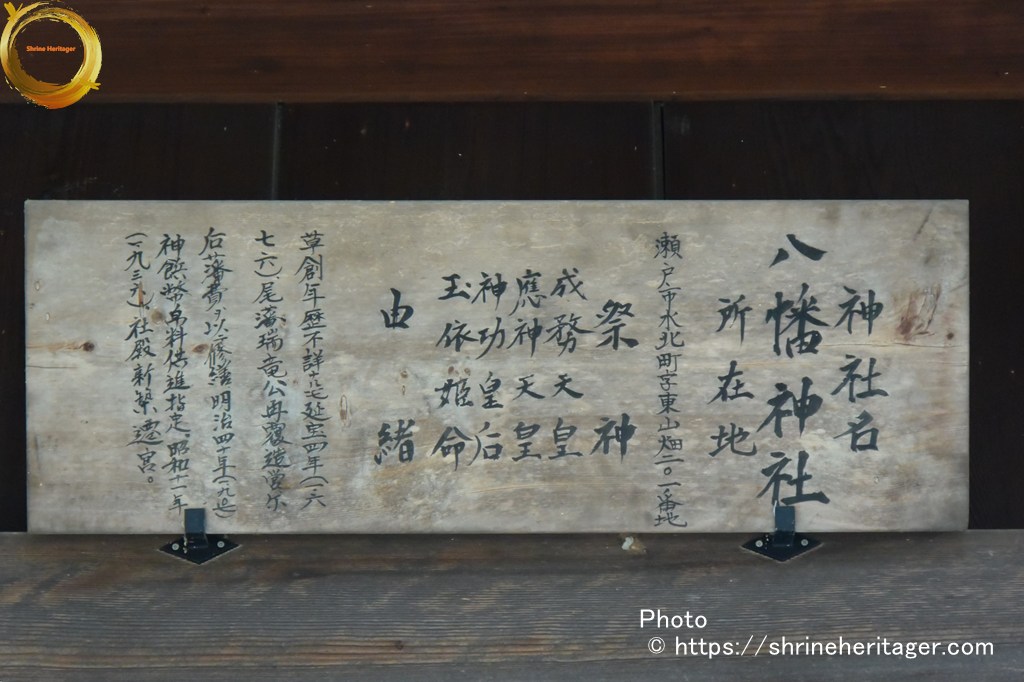 神社名
八幡神社
所在地
瀬戸市水北町字東山畑二〇一番地
祭神
成務天皇
應神天皇
神功皇后
玉依姫命
由緒
草創年歴不詳も延宝四年(一六
七六)、尾藩瑞竜公再覆造営尓
后藩費ヲ以修繕明治四十年(一九〇七)
神饌幣帛料供進指定、昭和十一年
(一九三六)社殿新築遷宮。
Shrine Heritager
Photo
© https://shrineheritager.com